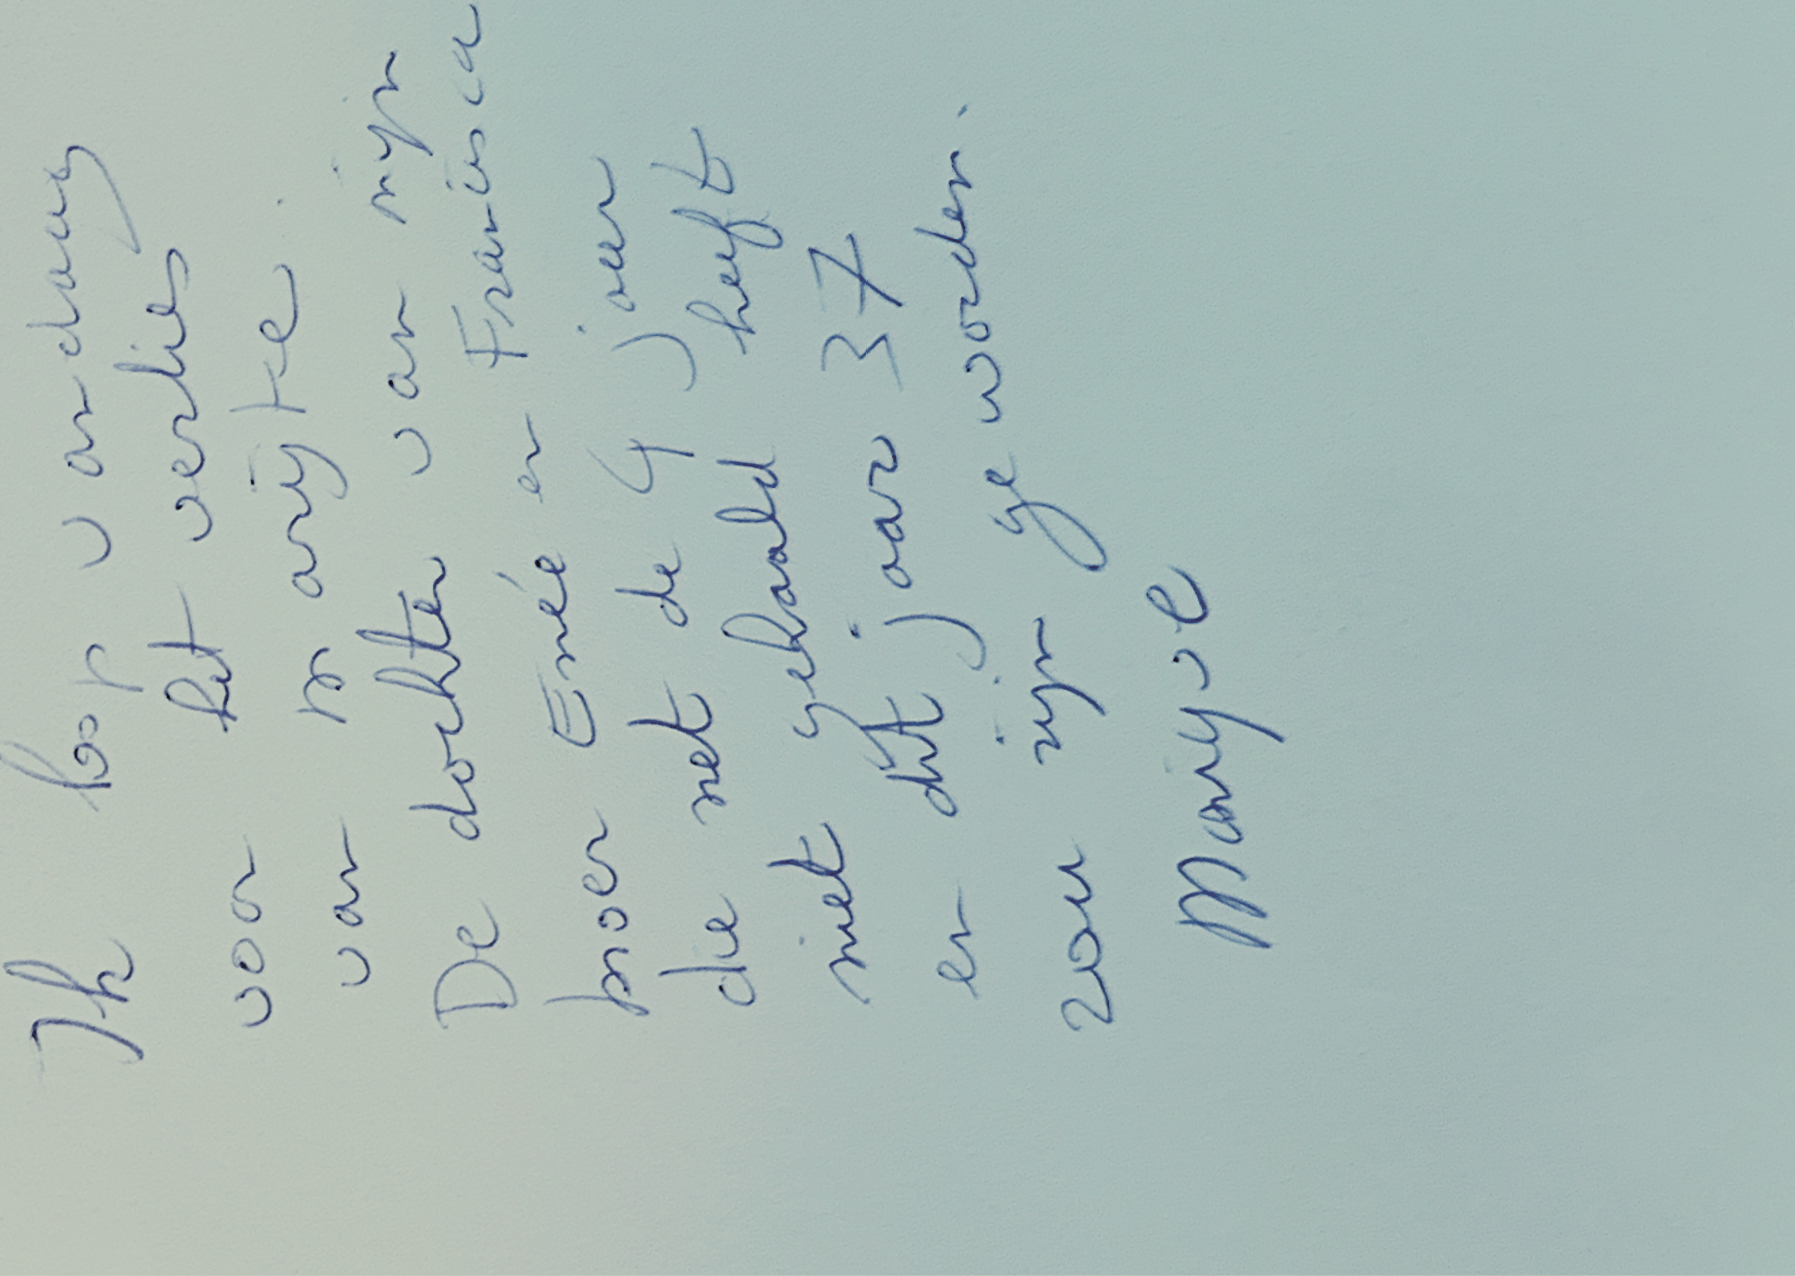 Ik loop vandaag
voor het verlies
van Marijtje.
De dochter van mijn
broer Enée en Francisca
die net de 4 jaar
niet gehaald heeft
en dit jaar 37
zou zijn geworden.
Marijve